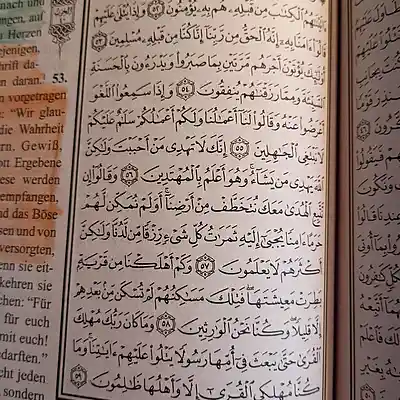 ungen, auf
Herzen
ejenigen,
hrift da-
daran. 53.
vorgetragen
: “Wir glau-
die Wahrheit
rn. Gewiß,
ott Ergebene
ese werden
empfangen,
nd das Böse
sen und von
versorgten,
enn sie eit-
kehren sie
chen: “Für
für euch
mit euch!
edarften.”
cht jeden
sondern
ٱلْكِتَٰبَ مِن قَبْلِهِۦ هُم بِهِۦ يُؤْمِنُونَ ٥٢ وَإِذَا يُتْلَىٰ عَلَيْهِمْ
قَالُوٓا۟ ءَامَنَّا بِهِۦٓ إِنَّهُ ٱلْحَقُّ مِن رَّبِّنَآ إِنَّا كُنَّا مِن قَبْلِهِۦ مُسْلِمِينَ
٥٣ أُو۟لَٰٓئِكَ يُؤْتَوْنَ أَجْرَهُم مَّرَّتَيْنِ بِمَا صَبَرُوا۟ وَيَدْرَءُونَ بِٱلْحَسَنَةِ
ٱلسَّيِّئَةَ وَمِمَّا رَزَقْنَٰهُمْ يُنفِقُونَ ٥٤ وَإِذَا سَمِعُوا۟ ٱللَّغْوَ
أَعْرَضُوا۟ عَنْهُ وَقَالُوا۟ لَنَآ أَعْمَٰلُنَا وَلَكُمْ أَعْمَٰلُكُمْ سَلَٰمٌ عَلَيْكُمْ
لَا نَبْتَغِى ٱلْجَٰهِلِينَ ٥٥ إِنَّكَ لَا تَهْدِى مَنْ أَحْبَبْتَ وَلَٰكِنَّ
ٱللَّهَ يَهْدِى مَن يَشَآءُ ۚ وَهُوَ أَعْلَمُ بِٱلْمُهْتَدِينَ ٥٦ وَقَالُوٓا۟ إِن
نَّتَّبِعِ ٱلْهُدَىٰ مَعَكَ نُتَخَطَّفْ مِنْ أَرْضِنَآ ۚ أَوَلَمْ نُمَكِّن لَّهُمْ
حَرَمًا ءَامِنًا يُجْبَىٰٓ إِلَيْهِ ثَمَرَٰتُ كُلِّ شَىْءٍ رِّزْقًا مِّن لَّدُنَّا وَلَٰكِنَّ
أَكْثَرَهُمْ لَا يَعْلَمُونَ ٥٧ وَكَمْ أَهْلَكْنَا مِن قَرْيَةٍۭ
بَطِرَتْ مَعِيشَتَهَا ۖ فَتِلْكَ مَسَٰكِنُهُمْ لَمْ تُسْكَن مِّنۢ بَعْدِهِمْ
إِلَّا قَلِيلًا ۖ وَكُنَّا نَحْنُ ٱلْوَٰرِثِينَ ٥٨ وَمَا كَانَ رَبُّكَ مُهْلِكَ
ٱلْقُرَىٰ حَتَّىٰ يَبْعَثَ فِىٓ أُمِّهَا رَسُولًا يَتْلُوا۟ عَلَيْهِمْ ءَايَٰتِنَا ۚ وَمَا
كُنَّا مُهْلِكِى ٱلْقُرَىٰٓ إِلَّا وَأَهْلُهَا ظَٰلِمُونَ ٥٩